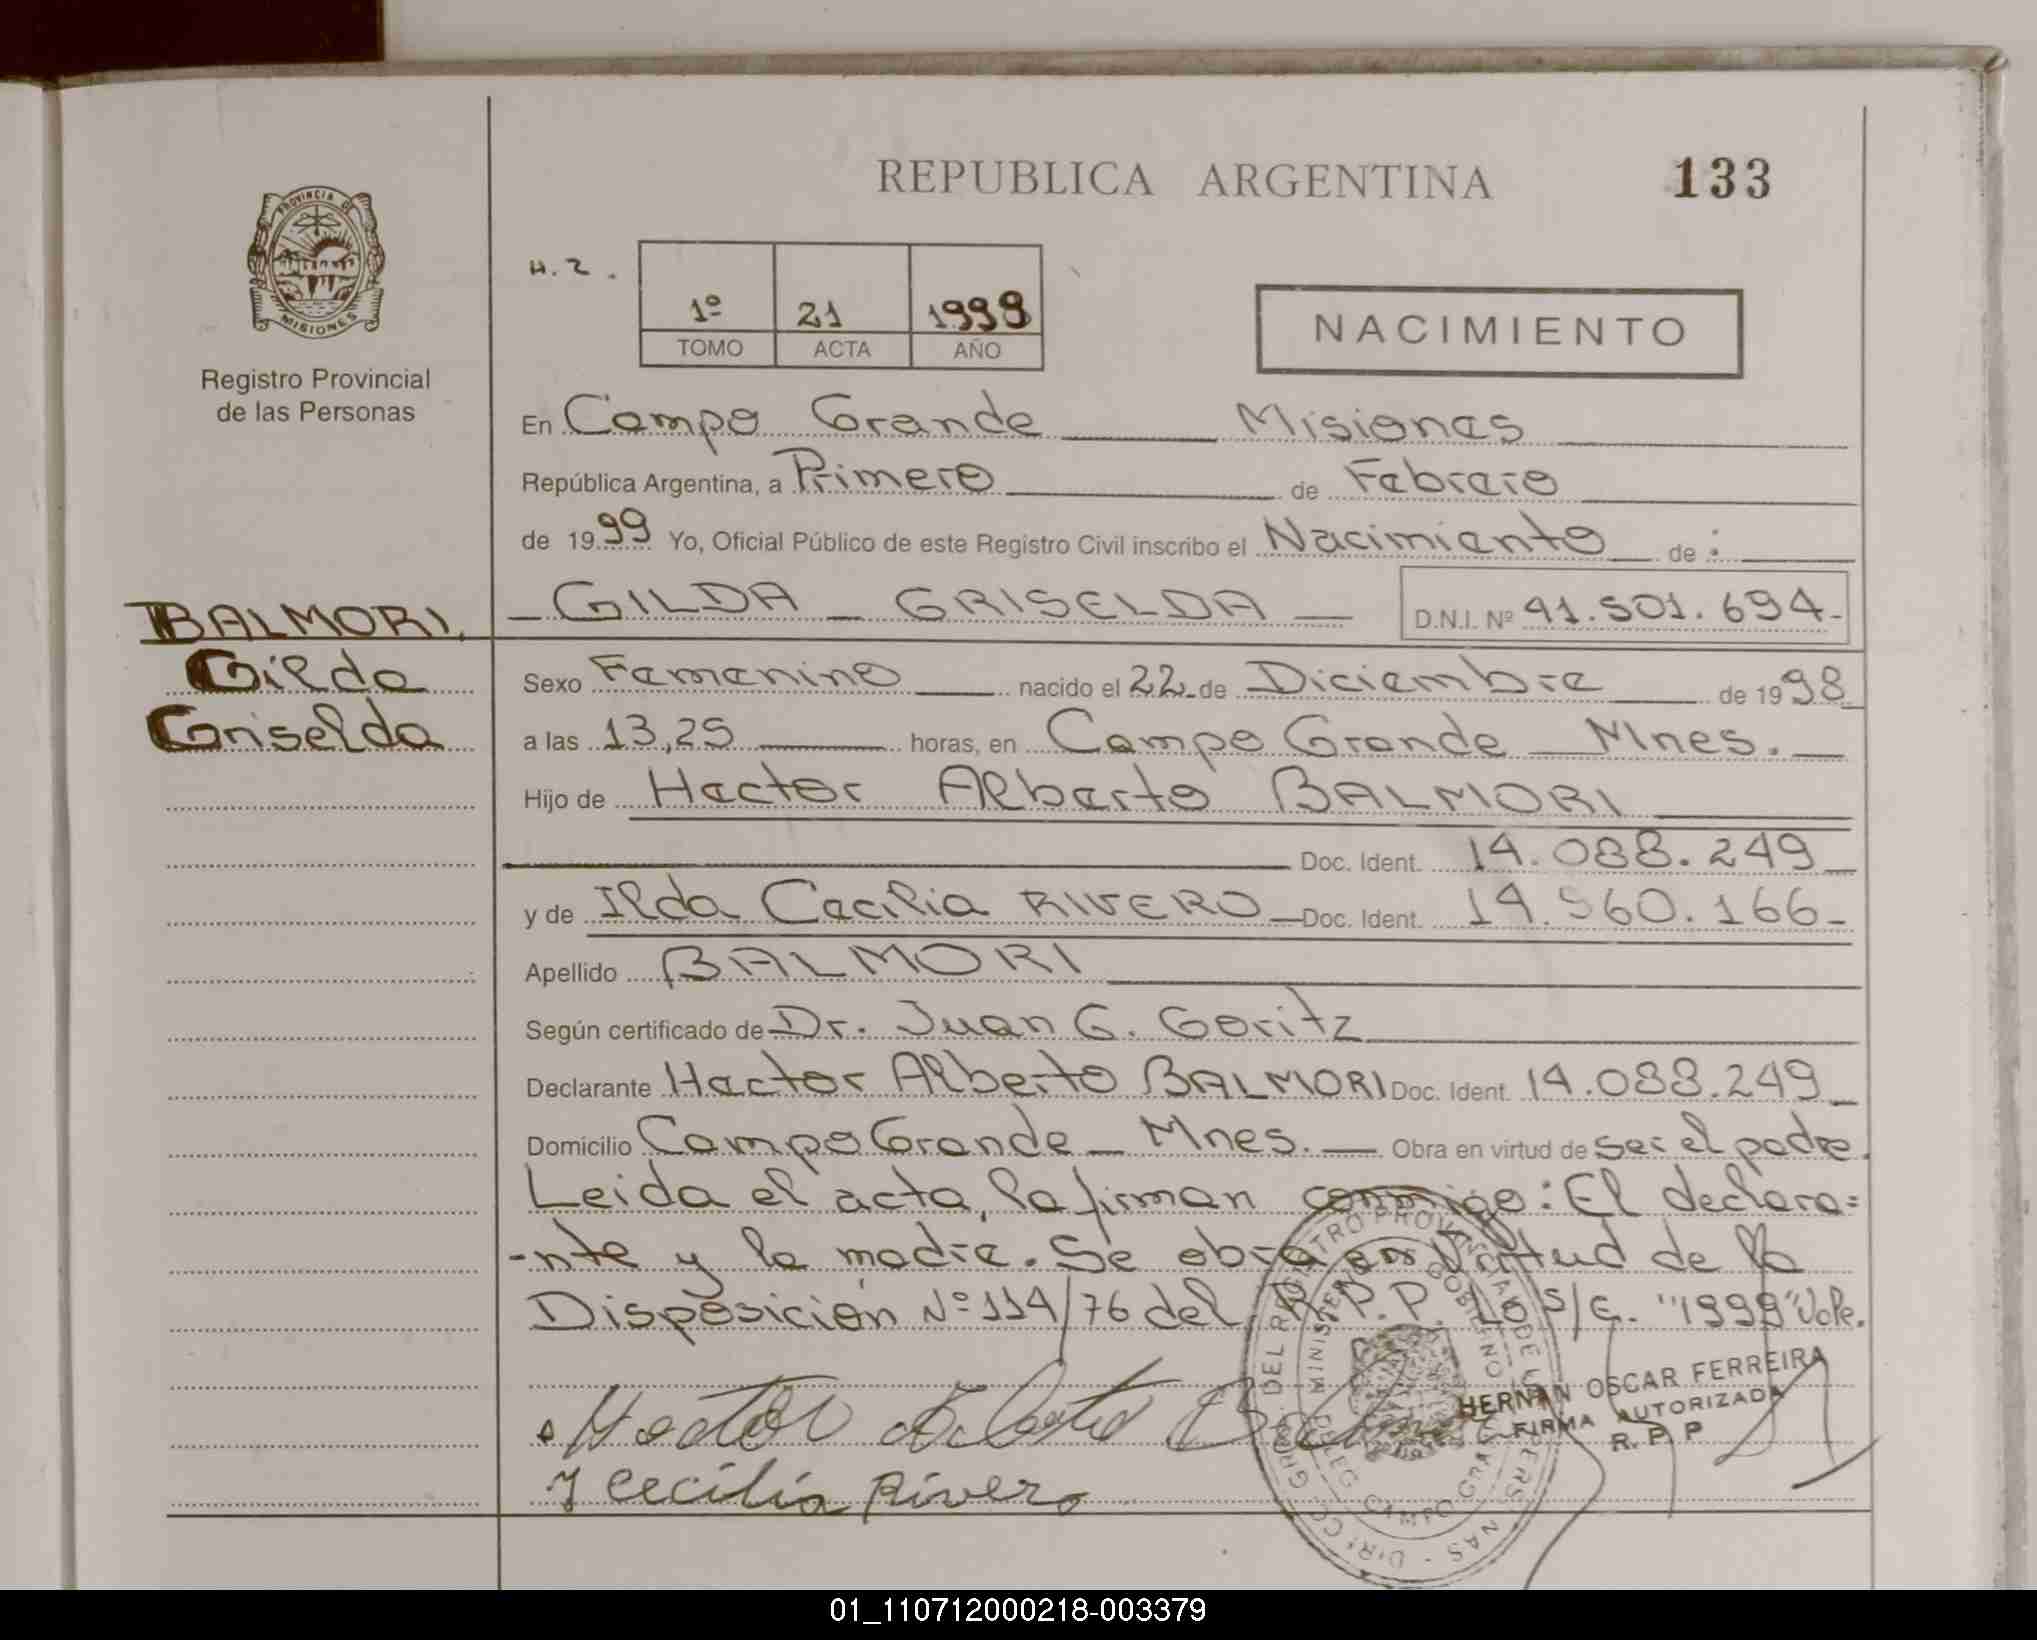 REPUBLICA ARGENTINA 133
PROVINCIA DE MISIONES
Registro Provincial
de las Personas
H.2.
1º 21 1999
TOMO ACTA AÑO
NACIMIENTO
En Campo Grande Misiones
República Argentina, a Primero de Febrero
de 1999 Yo, Oficial Público de este Registro Civil inscribo el Nacimiento de :
BALMORI,
Gilda
Griselda
GILDA - GRISELDA D.N.I. Nº 41.501.694-
Sexo Femenino nacido el 22 de Diciembre de 1998
a las 13,25 horas, en Campo Grande - Mnes.
Hijo de Hector Alberto BALMORI
Doc. Ident. 14.088.249
y de Ilda Cecilia RIVERO Doc. Ident. 14.560.166-
Apellido BALMORI
Según certificado de Dr. Juan G. Goritz
Declarante Hector Alberto BALMORI Doc. Ident. 14.088.249
Domicilio Campo Grande - Mnes. Obra en virtud de ser el padre.
Leida el acta, la firman conmigo: El declara=
-nte y la madre. Se obra en virtud de la
Disposición Nº 114/76 del R.P.P. Lo s/c. "1999" Vale.
Hector Alberto
I Cecilia Rivero
HERNAN OSCAR FERREIRA
FIRMA AUTORIZADA
R.P.P
01_110712000218-003379